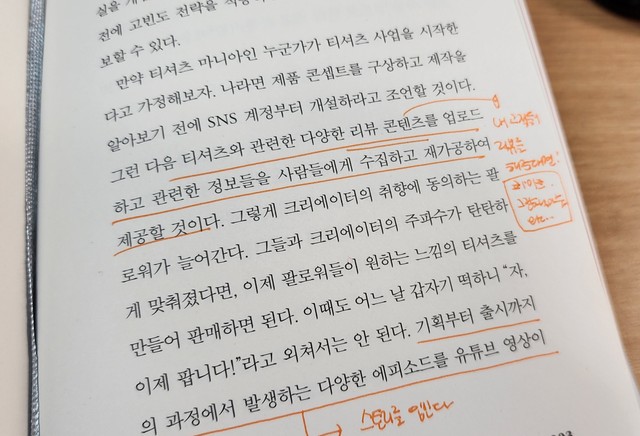 전에 고빈도 전략을
보할 수 있다.
만약 티셔츠 마니아인 누군가가 티셔츠 사업을 시작한
다고 가정해보자. 나라면 제품 콘셉트를 구상하고 제작을
알아보기 전에 SNS 계정부터 개설하라고 조언할 것이다.
그런 다음 티셔츠와 관련한 다양한 리뷰 콘텐츠를 업로드
하고 관련한 정보들을 사람들에게 수집하고 재가공하여
제공할 것이다. 그렇게 크리에이터의 취향에 동의하는 팔
로워가 늘어간다. 그들과 크리에이터의 주파수가 탄탄하
게 맞춰졌다면, 이제 팔로워들이 원하는 느낌의 티셔츠를
만들어 판매하면 된다. 이때도 어느 날 갑자기 떡하니 “자,
이제 팝니다!”라고 외쳐서는 안 된다. 기획부터 출시까지
의 과정에서 발생하는 다양한 에피소드를 유튜브 영상이
스토리를 입힌다